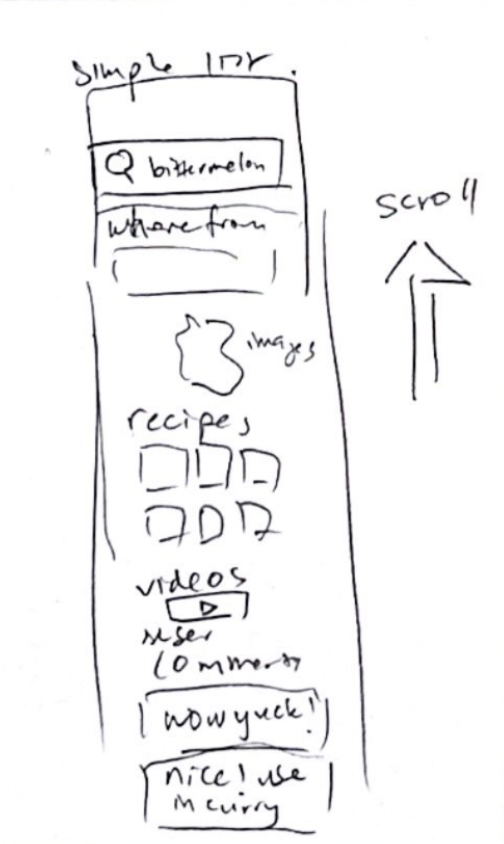 simple
bittermelon
where from
scroll
images
recipes
videos
user
comments
wow yuck!
nice! use
in curry